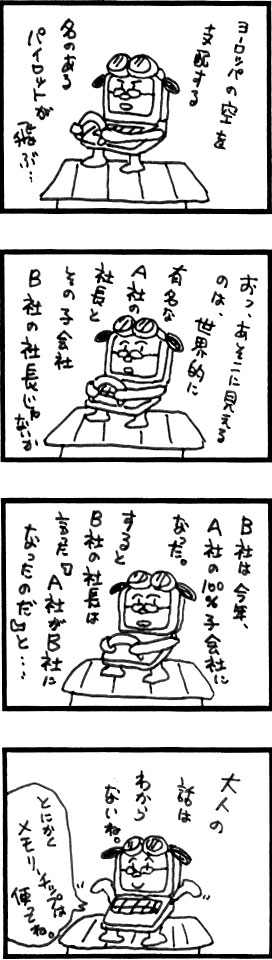 ヨーロッパの空を
支配する
名のある
パイロットが
飛ぶ…
おっ、あそこに見える
のは、世界的に
有名な
A社の
社長と
その子会社
B社の社長じゃないか
B社は今年、
A社の100%子会社に
なった。
すると
B社の社長は
言った『A社がB社に
なったのだ』と…
大人の
話は
わから
ないね。
とにかく
メモリーチップは
便でね。